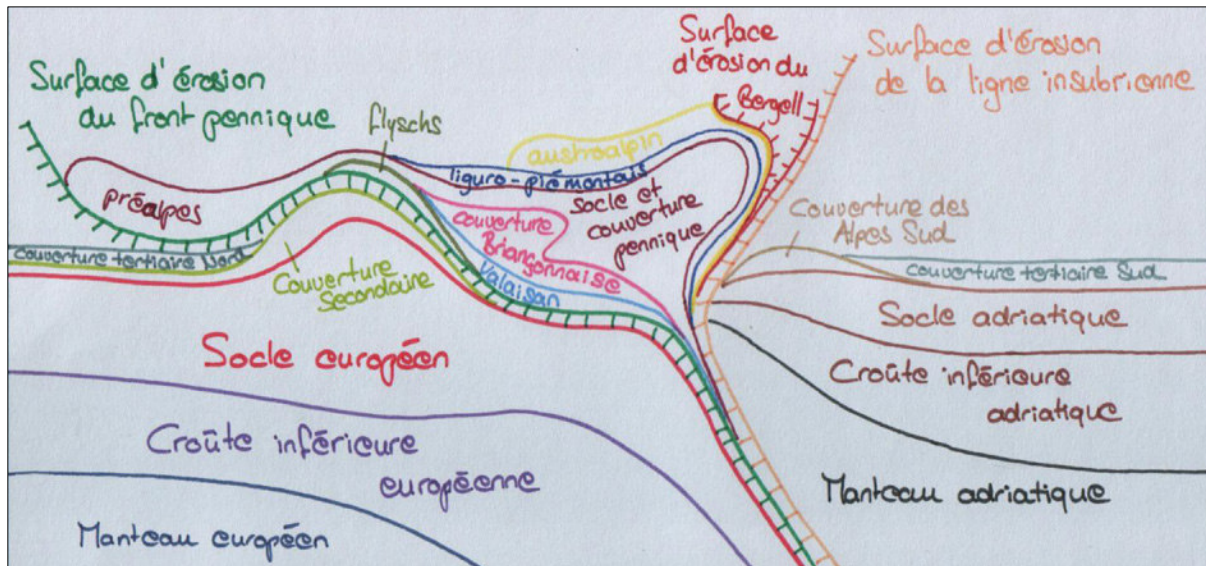 Surface d'érosion
du front pennique
flyschs
Surface
d'érosion du
Bergell
Surface d'érosion
de la ligne insubrienne
austroalpin
liguro-piémontais
préalpes
Socle et
couverture
pennique
couverture
Briançonnaise
Valaisan
Couverture des
Alpes Sud
couverture tertiaire Nord
couverture tertiaire Sud
Couverture
Secondaire
Socle européen
Socle adriatique
Croûte inférieure
adriatique
Croûte inférieure
européenne
Manteau adriatique
Manteau européen